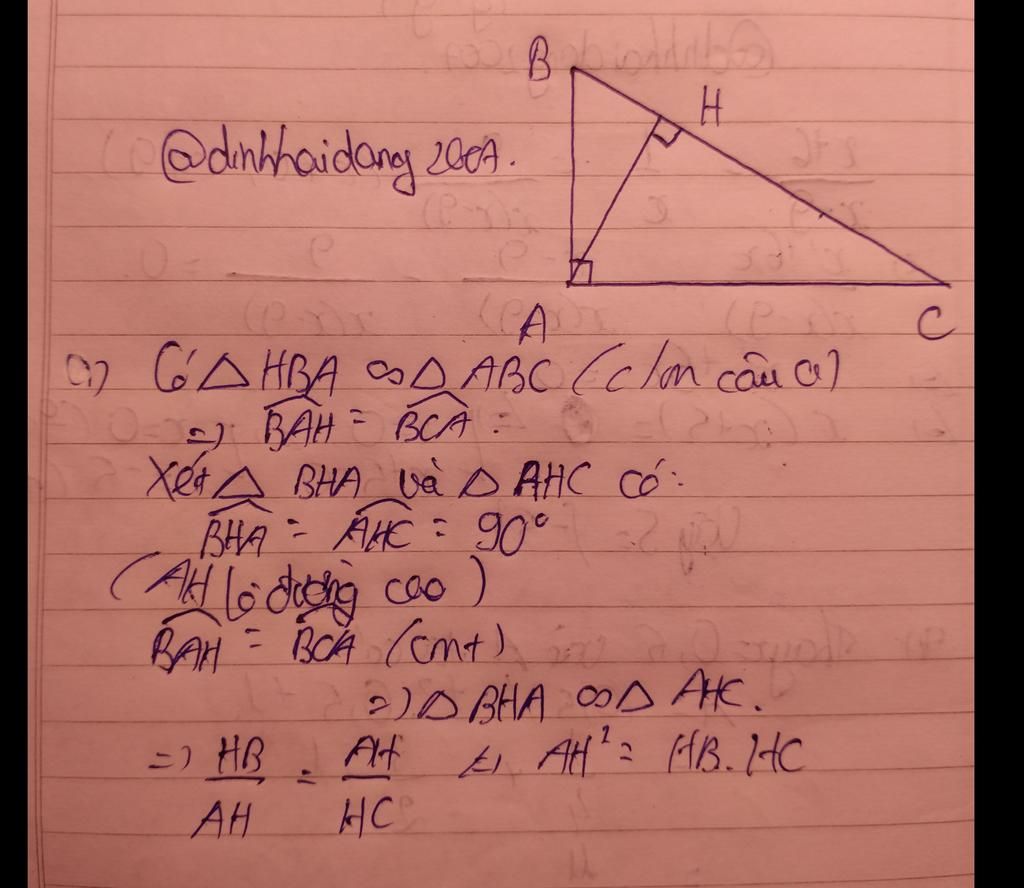 B
H
@dinhhaidang2007.
A
C
a) Có △ HBA ∽ △ ABC (c/m câu a)
=> BAH = BCA
Xét △ BHA và △ AHC có:
BHA = AHC = 90°
(AH là đường cao)
BAH = BCA (cmt)
=> △ BHA ∽ △ AHC.
=> HB/AH = AH/HC <=> AH² = HB.HC